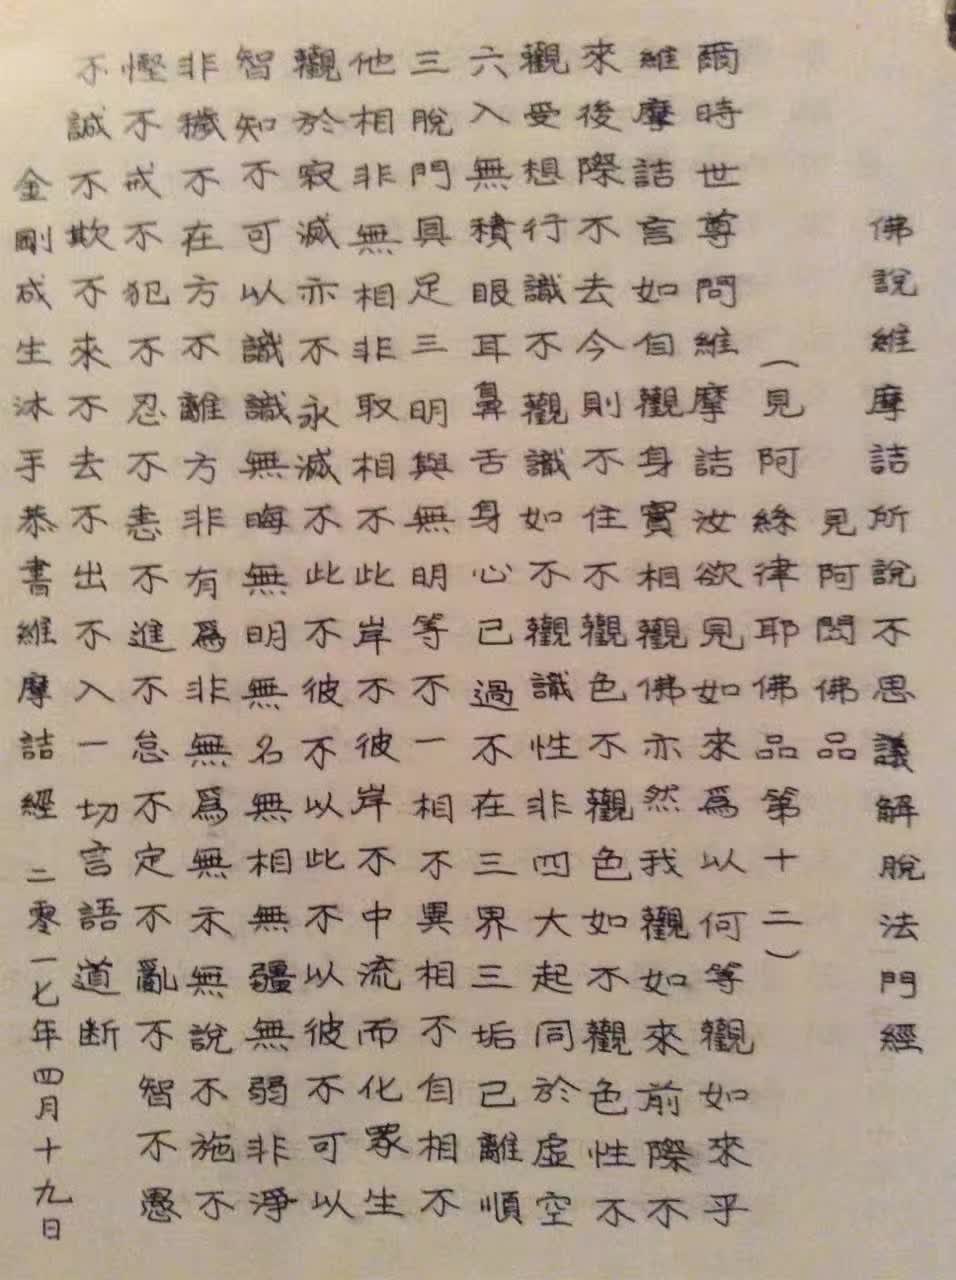 佛說維摩詰所說不思議解脫法門經
見阿閦佛品
（見阿絲律耶佛品第十二）
爾時世尊問維摩詰汝欲見如來為以何等觀如來乎
維摩詰言如自觀身實相觀佛亦然我觀如來前際不
來後際不去今則不住不觀色不觀色如不觀色性不
觀受想行識不觀識如不觀識性非四大起同於虛空
六入無積眼耳鼻舌身心已過不在三界三垢已離順
三脫門具足三明與無明等不一相不異相不自相不
他相非無相非取相不此岸不彼岸不中流而化眾生
觀於寂滅亦不永滅不此不彼不以此不以彼不可以
智知不可以識識無晦無明無名無相無疆無弱非淨
非穢不在方不離方非有為非無為無示無說不施不
慳不戒不犯不忍不恚不進不怠不定不亂不智不愚
不誠不欺不來不去不出不入一切言語道断
金剛成生沐手恭書維摩詰經 二零一七年四月十九日